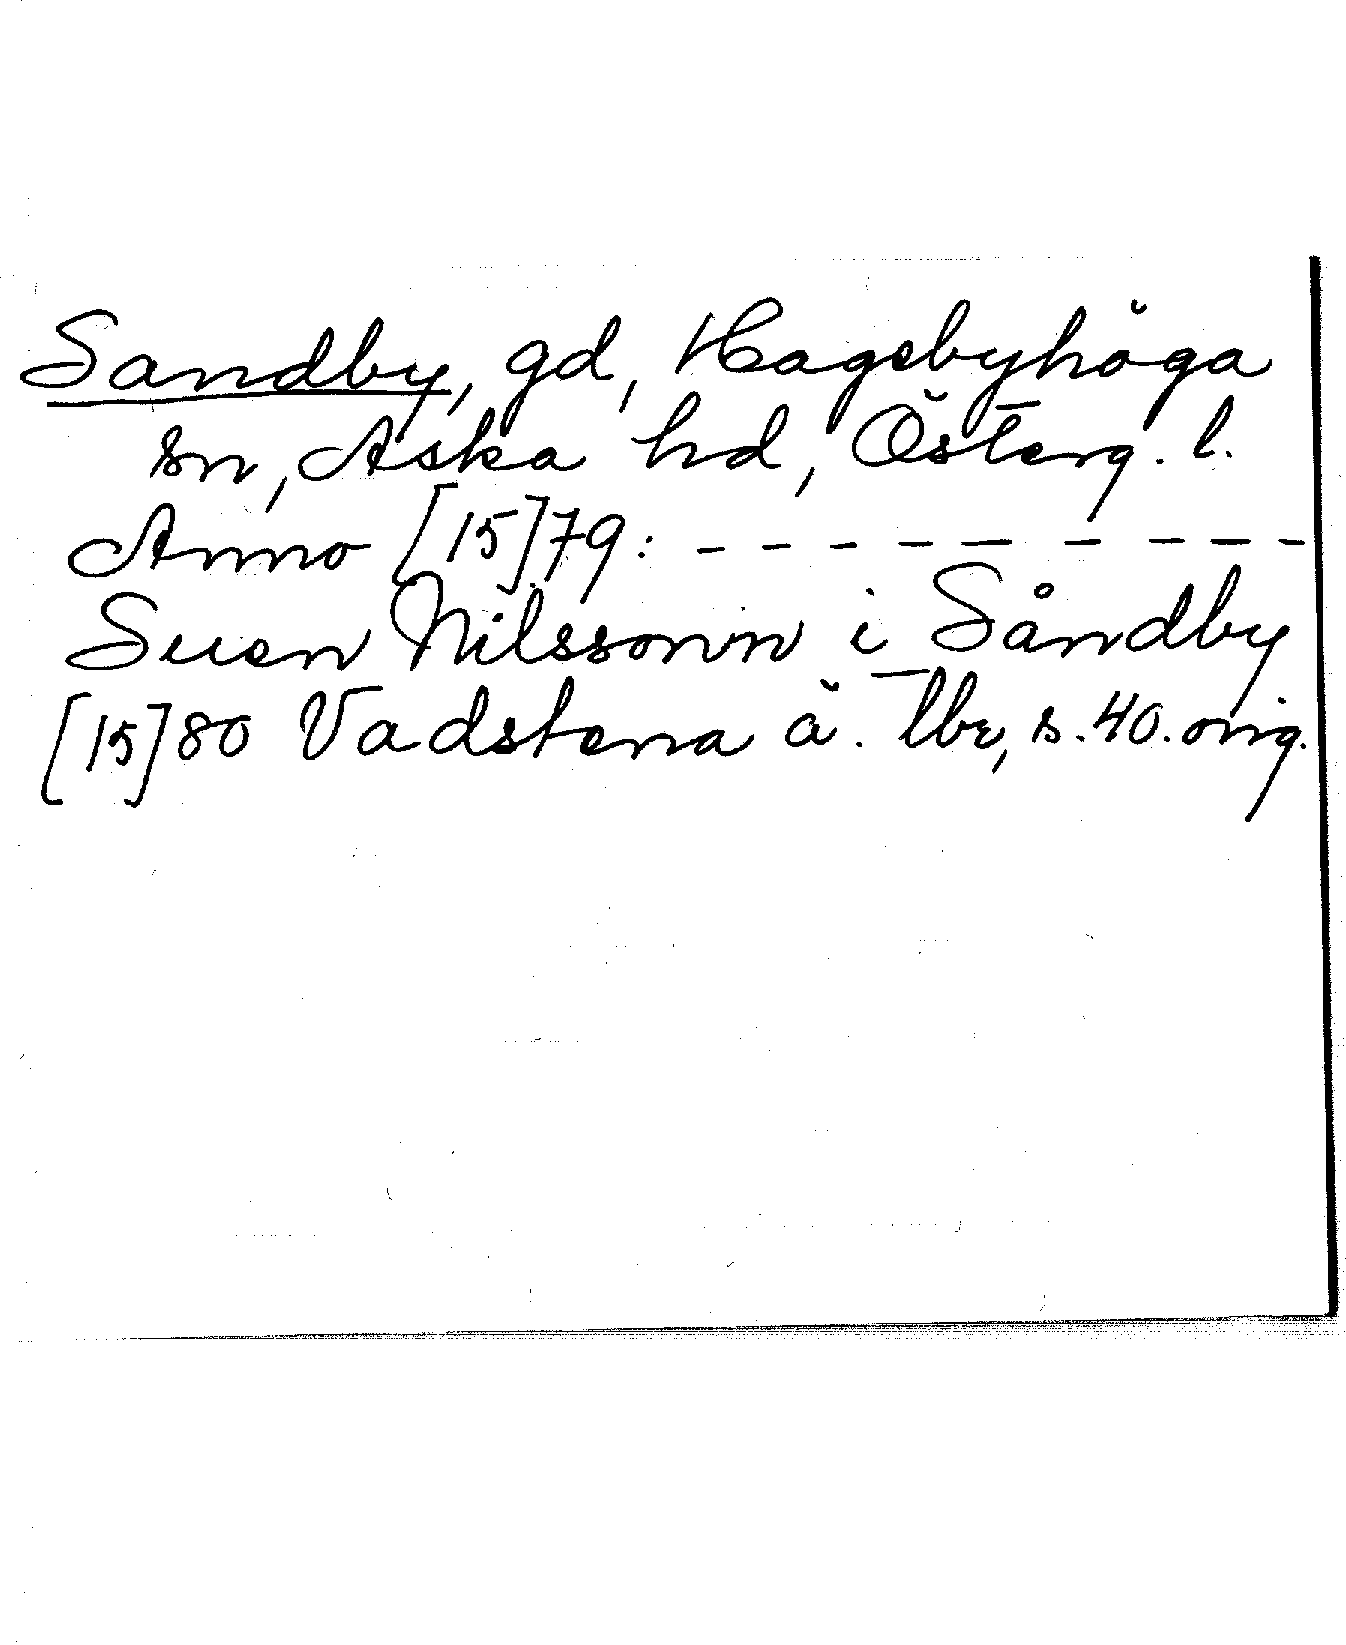 Sandby, gd, Hagebyhöga
sn, Aska hd, Österg. l.
Anno [15]79: - - - - - - - - -
Suen Nilssonn i Såndby
[15]80 Vadstena ä. Tbr, s. 40. orig.